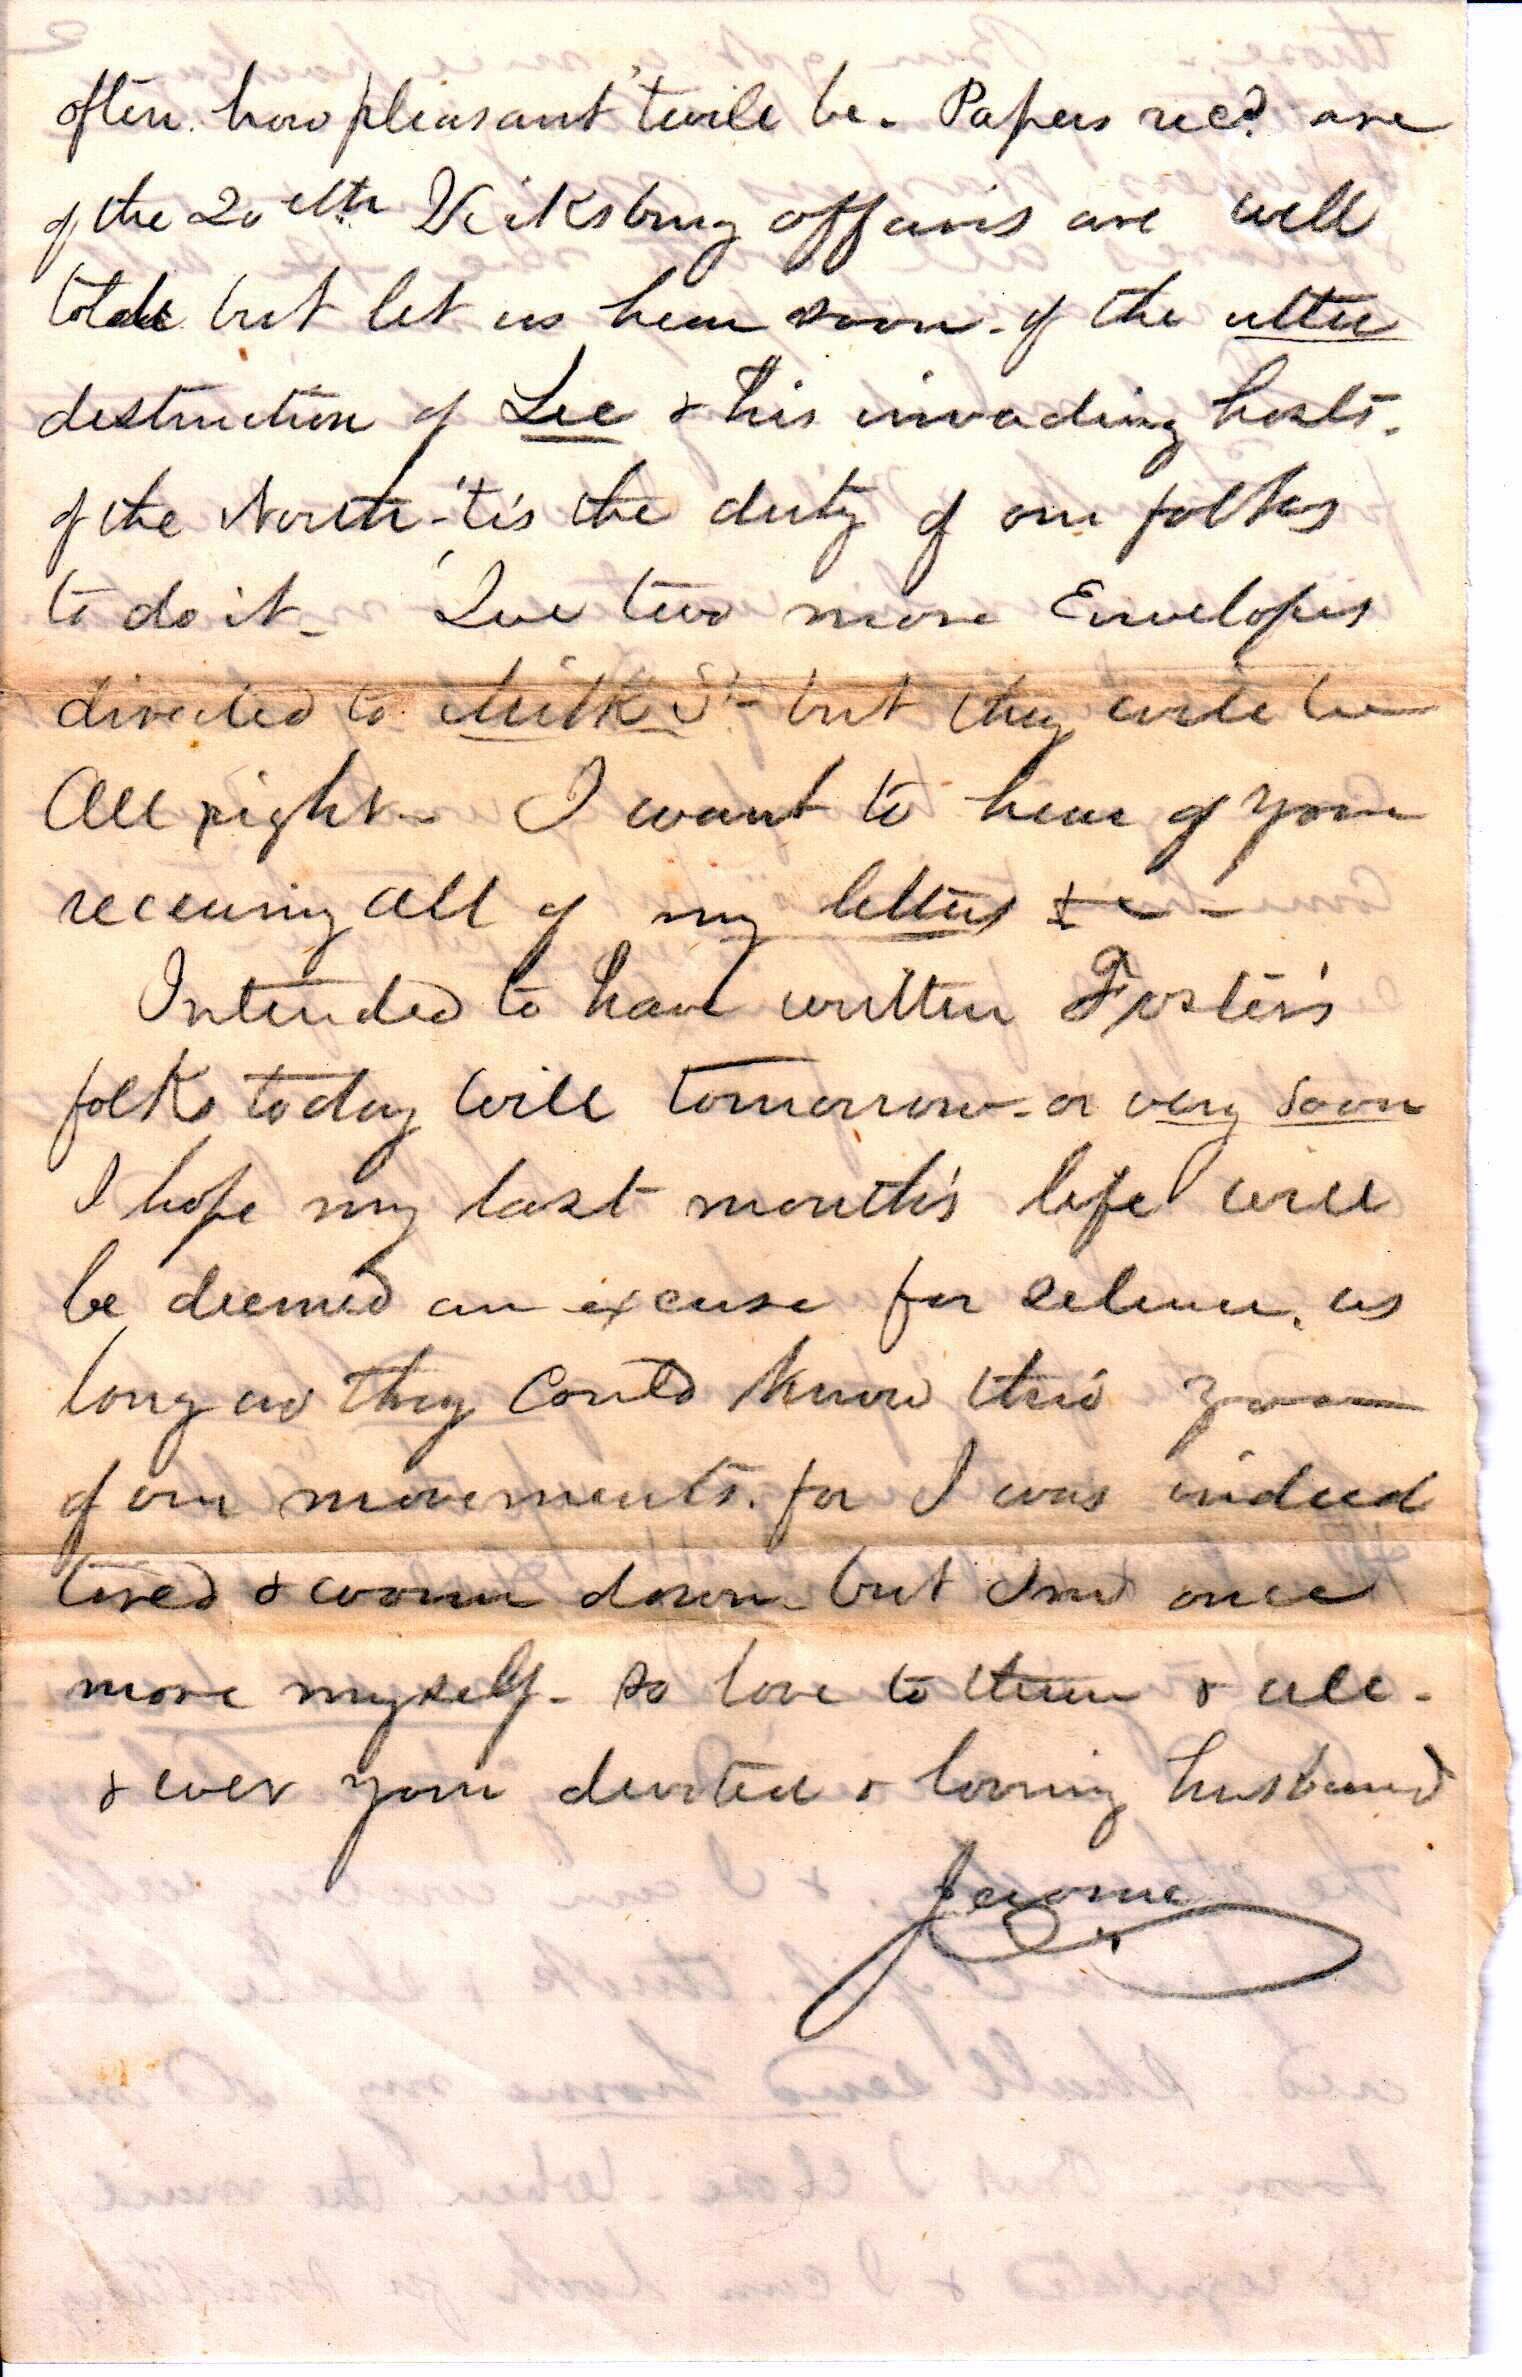 often. how pleasant 'twill be. Papers recd. are
of the 20 Vicksburg affairs are well
told but let us hear soon of the utter
destruction of Lee & his invading hosts.
of the North - 'tis the duty of our folks
to do it - I've two more Envelopes
directed to Milk St - but they will be
All right - I want to hear of your
receiving all of my letters &c -
Intended to have written Foster's
folks today will tomorrow - or very soon
I hope my last month's life will
be deemed an excuse for silence. as
long as they could know thro you
of our movements. for I was indeed
tired & worn down - but I'm once
more myself - So love to them & all -
& ever your devoted & loving husband
Jerome